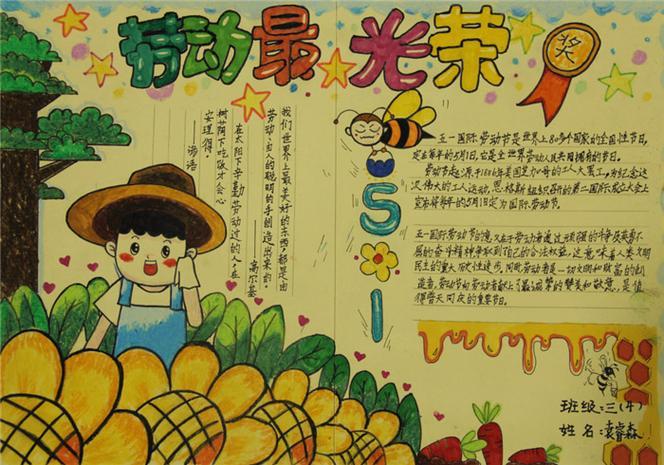 劳动最光荣
奖
我们世界上最美好的东西,都是由
劳动、由人的聪明的手创造出来的。
——高尔基
在太阳下辛勤劳动过的人,在
树荫下吃饭才会心
安理得。
——谚语
5
1
五一国际劳动节是世界上80多个国家的全国性节日。
定在每年的5月1日。它是全世界劳动人民共同拥有的节日。
劳动节起源于1886年美国芝加哥的工人大罢工,为纪念这
次伟大的工人运动,恩格斯组织召开的第二国际成立大会上
宣布将每年的5月1日定为国际劳动节。
五一国际劳动节的意义在于劳动者通过
斗争
的奋斗精神争取到
自己的合法权益,
这意味着人类文明
民主的
历史性进步,
劳动者
最
的赞美和敬意,是值
得普天同庆的重要节日。
班级:三(4)
姓名:袁睿森